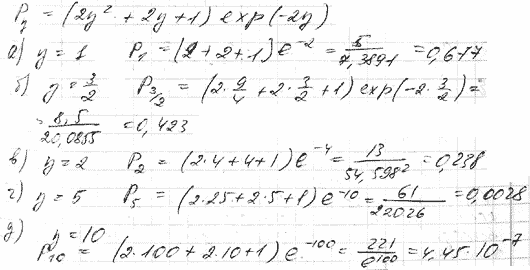 P_y = (2y² + 2y + 1) exp(-2y)
а) y = 1 P_1 = (2 + 2 + 1) e^{-2} = 5/7,3891 = 0,677
б) y = 3/2 P_{3/2} = (2·9/4 + 2·3/2 + 1) exp(-2·3/2) =
= 8,5/20,0855 = 0,423
в) y = 2 P_2 = (2·4 + 4 + 1) e^{-4} = 13/54,5982 = 0,238
г) y = 5 P_5 = (2·25 + 2·5 + 1) e^{-10} = 61/22026 = 0,0028
д) y = 10
P_{10} = (2·100 + 2·10 + 1) e^{-100} = 221/e^{100} = 4,45·10^{-7}